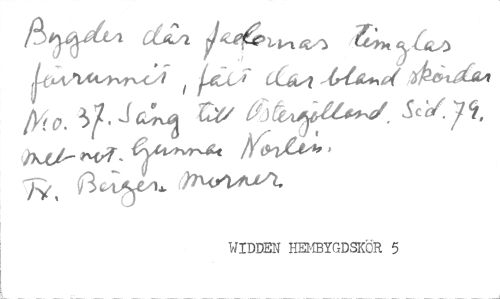 Bygder där fädernas timglas
förrunnit, fält där bland skördar
No. 37. Sång till Östergötland. Sid. 79.
mel-not. Gunnar Norlén.
Tx. Birger Mörner.
WIDDEN HEMBYGDSKÖR 5